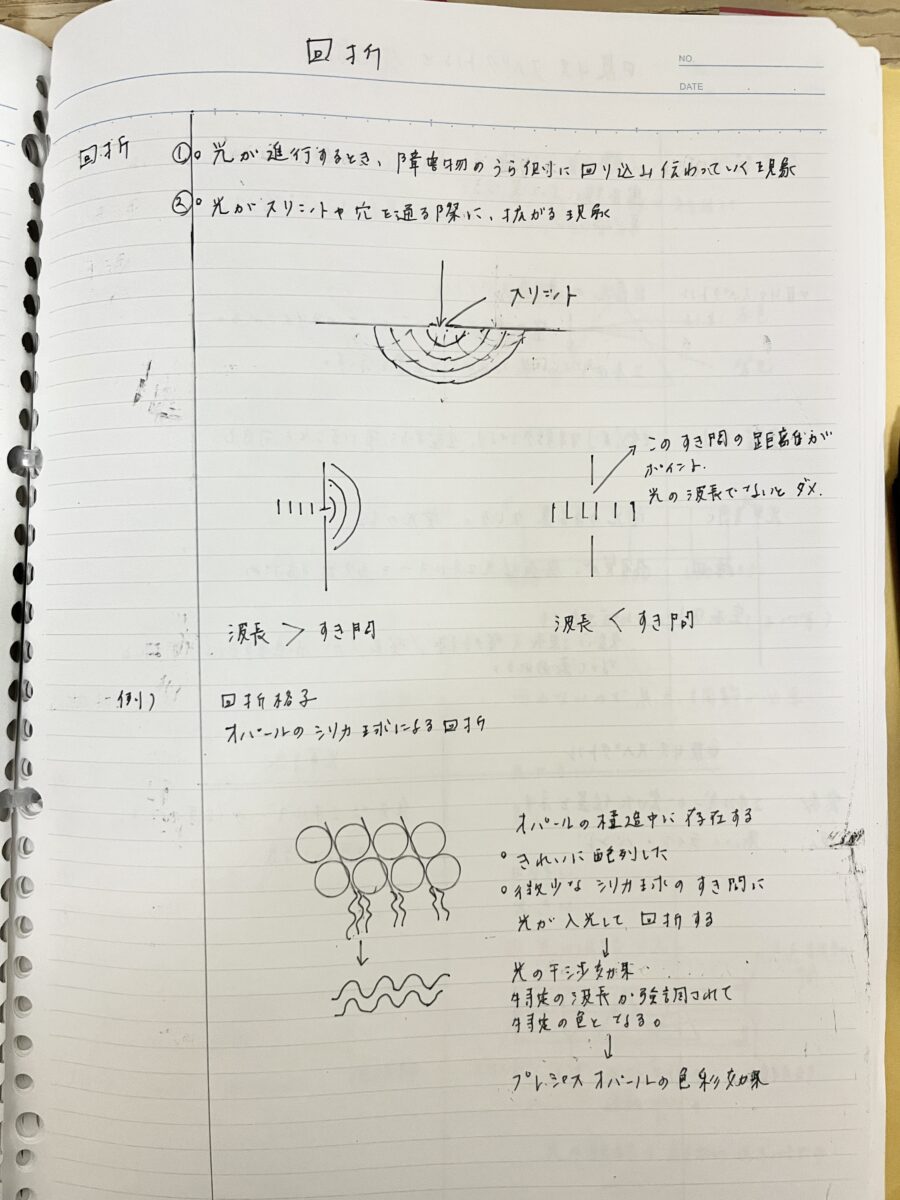 回折
NO.
DATE
回折 ①○ 光が進行するとき、障害物のうら側に回り込み伝わっていく現象
②○ 光がスリットや穴を通る際に、拡がる現象
スリット
このすき間の距離が
ポイント.
光の波長でないとダメ.
波長 > すき間
波長 < すき間
例)
回折格子
オパールのシリカ球による回折
オパールの構造中に存在する
○ きれいに配列した
○ 微少なシリカ球のすき間に
光が入光して、回折する
↓
光の干渉効果
特定の波長が強調されて
特定の色となる。
↓
プレシャスオパールの色彩効果